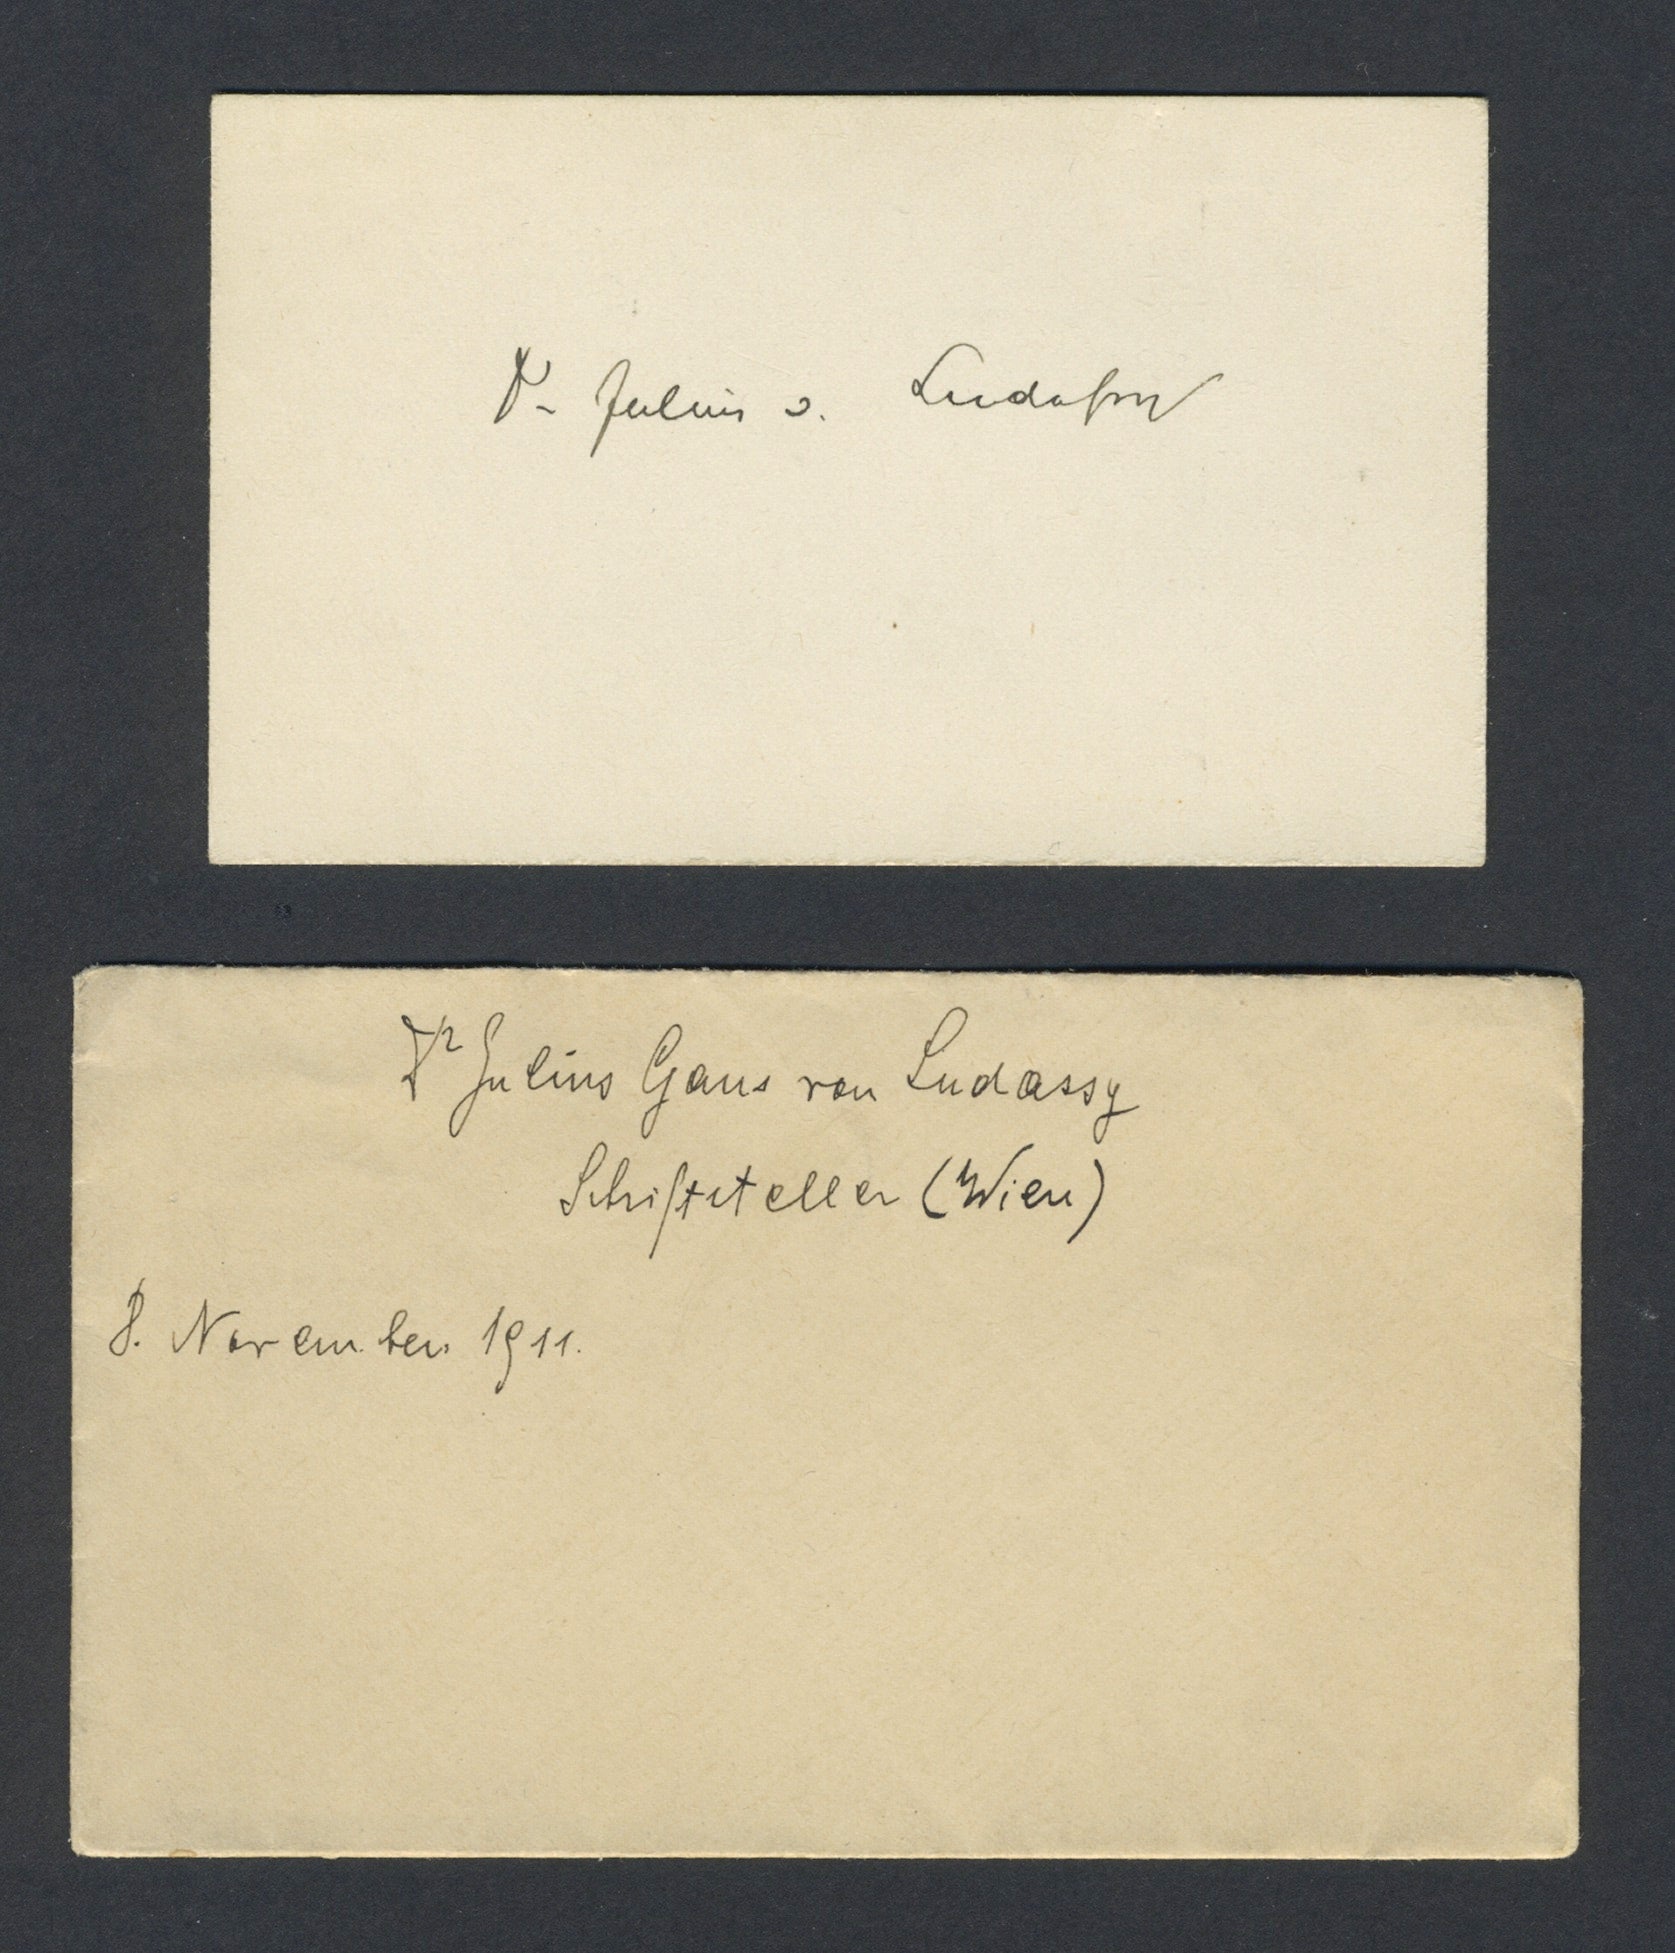 Dr Julius v. Ludassy
Dr Julius Gans von Ludassy
Schriftsteller (Wien)
8. November 1911.